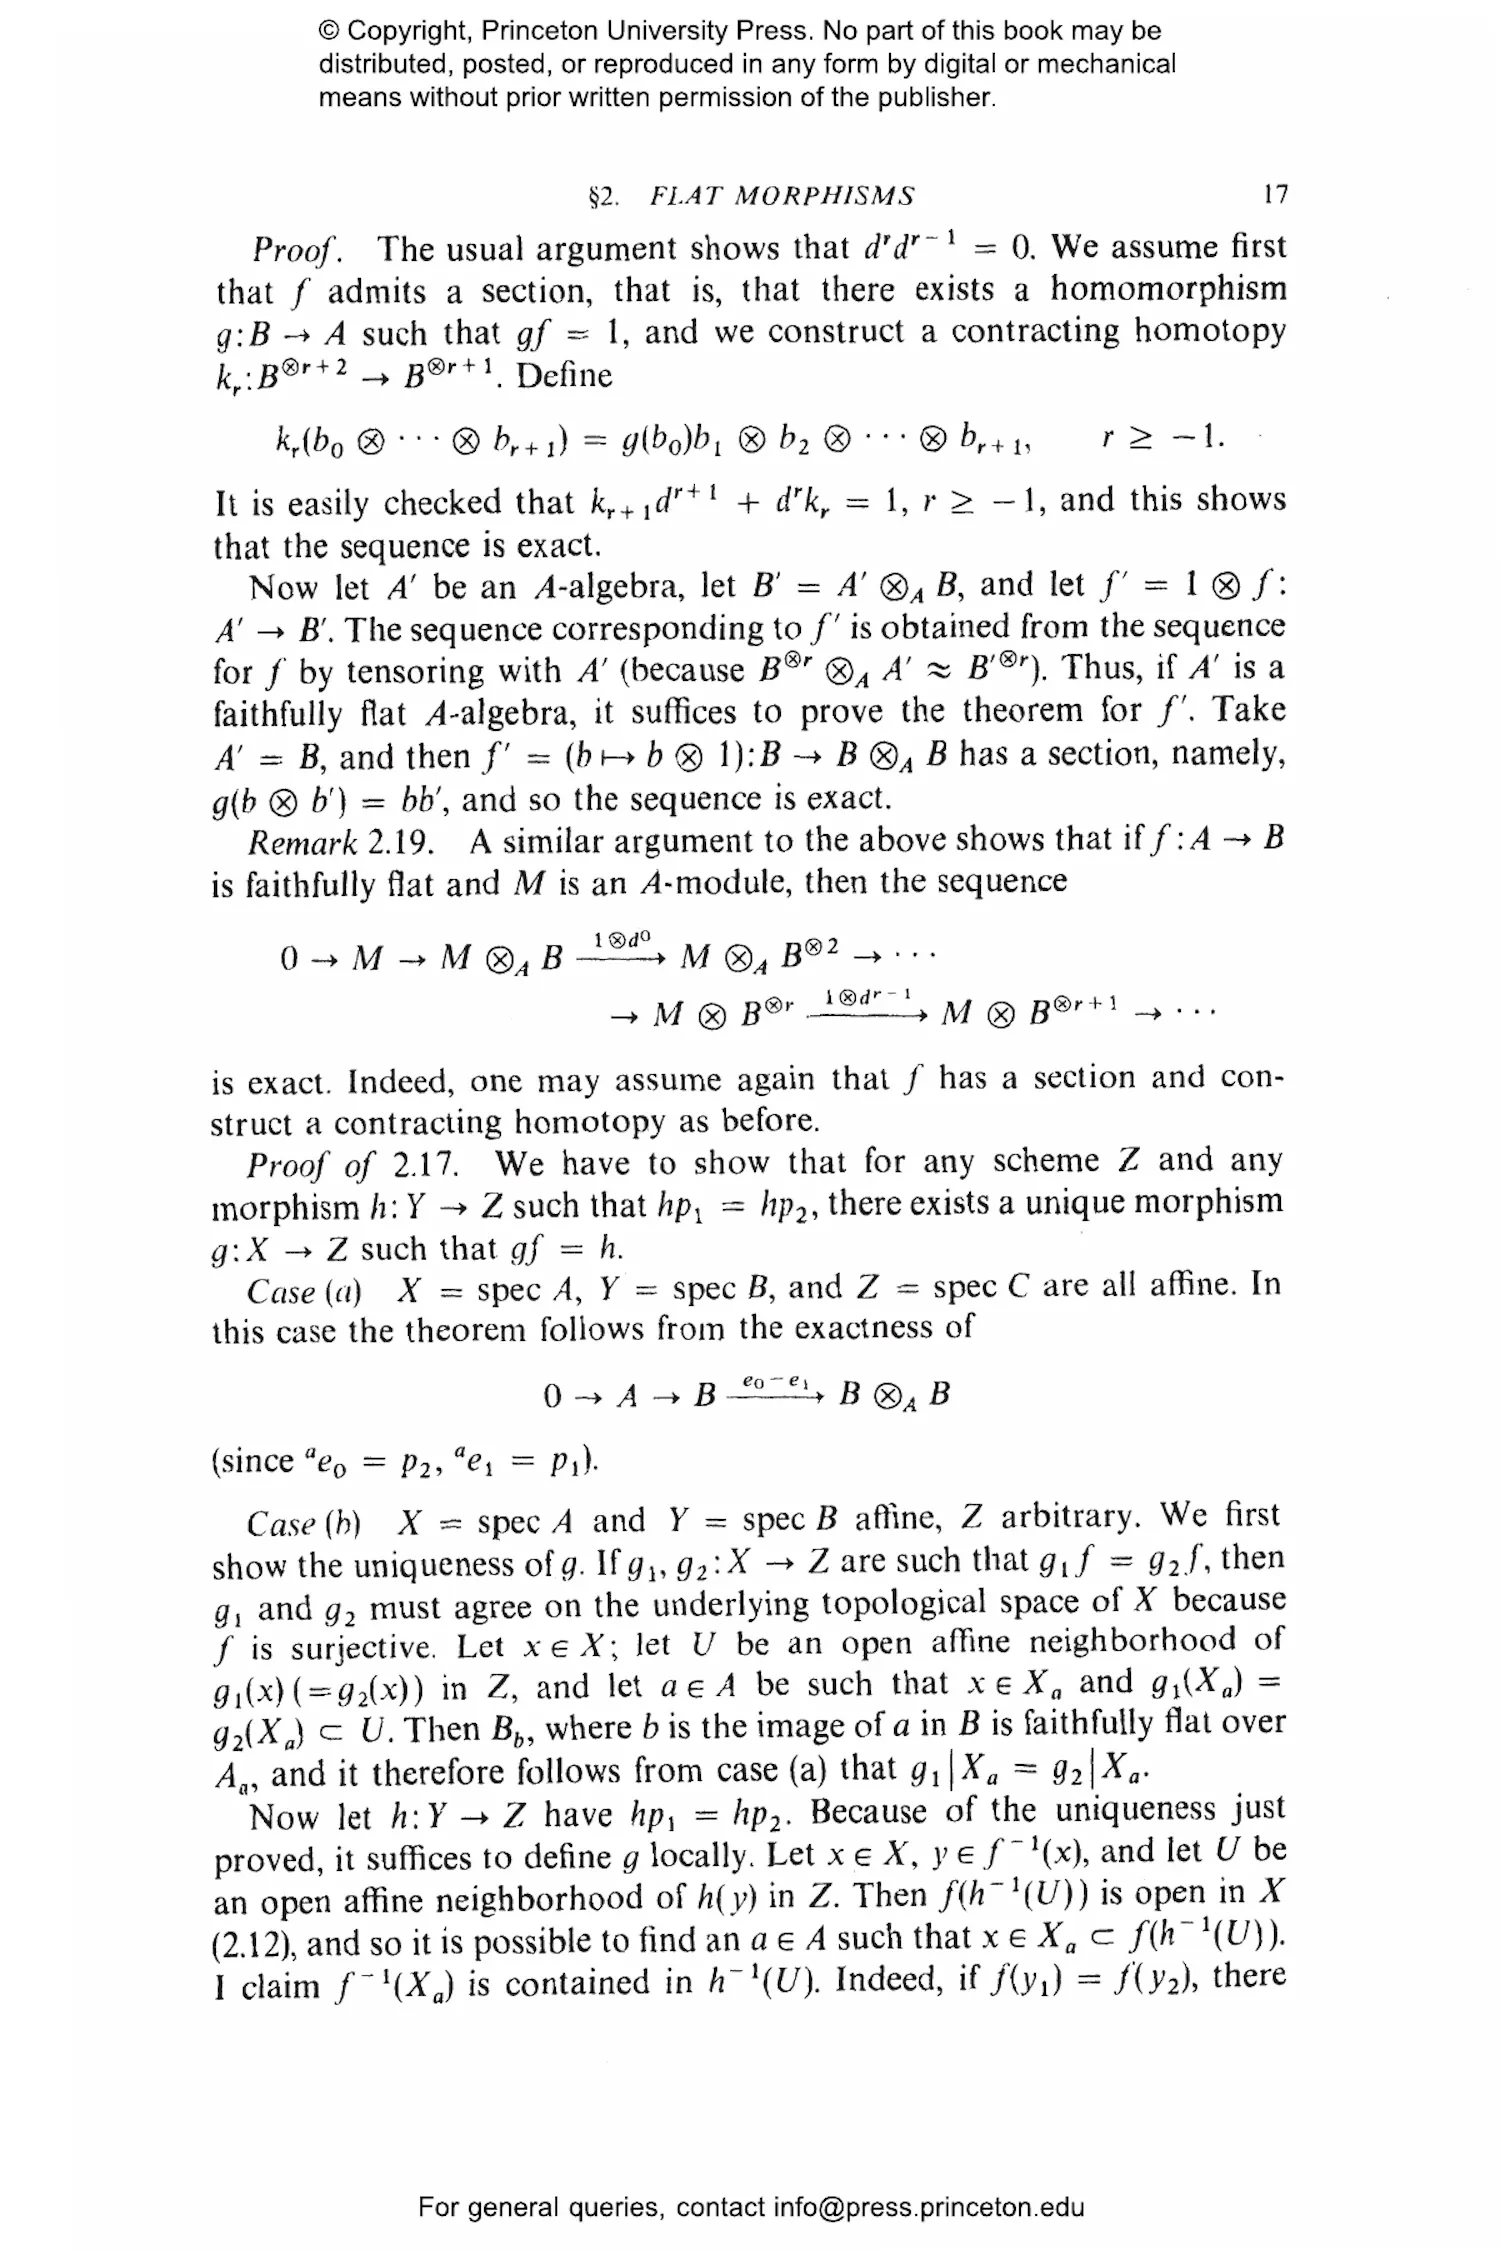 © Copyright, Princeton University Press. No part of this book may be
distributed, posted, or reproduced in any form by digital or mechanical
means without prior written permission of the publisher.
§2. FLAT MORPHISMS 17
Proof. The usual argument shows that dʳdʳ⁻¹ = 0. We assume first
that f admits a section, that is, that there exists a homomorphism
g:B → A such that gf = 1, and we construct a contracting homotopy
kᵣ:B^{⊗r+2} → B^{⊗r+1}. Define
kᵣ(b₀ ⊗ ··· ⊗ b_{r+1}) = g(b₀)b₁ ⊗ b₂ ⊗ ··· ⊗ b_{r+1}, r ≥ −1.
It is easily checked that k_{r+1}d^{r+1} + dʳkᵣ = 1, r ≥ −1, and this shows
that the sequence is exact.
Now let A′ be an A-algebra, let B′ = A′ ⊗_A B, and let f′ = 1 ⊗ f:
A′ → B′. The sequence corresponding to f′ is obtained from the sequence
for f by tensoring with A′ (because B^{⊗r} ⊗_A A′ ≈ B′^{⊗r}). Thus, if A′ is a
faithfully flat A-algebra, it suffices to prove the theorem for f′. Take
A′ = B, and then f′ = (b ↦ b ⊗ 1):B → B ⊗_A B has a section, namely,
g(b ⊗ b′) = bb′, and so the sequence is exact.
Remark 2.19. A similar argument to the above shows that if f:A → B
is faithfully flat and M is an A-module, then the sequence
0 → M → M ⊗_A B \xrightarrow{1⊗d⁰} M ⊗_A B^{⊗2} → ···
→ M ⊗ B^{⊗r} \xrightarrow{1⊗d^{r−1}} M ⊗ B^{⊗r+1} → ···
is exact. Indeed, one may assume again that f has a section and con-
struct a contracting homotopy as before.
Proof of 2.17. We have to show that for any scheme Z and any
morphism h: Y → Z such that hp₁ = hp₂, there exists a unique morphism
g:X → Z such that gf = h.
Case (a) X = spec A, Y = spec B, and Z = spec C are all affine. In
this case the theorem follows from the exactness of
0 → A → B \xrightarrow{e₀−e₁} B ⊗_A B
(since ᵃe₀ = p₂, ᵃe₁ = p₁).
Case (b) X = spec A and Y = spec B affine, Z arbitrary. We first
show the uniqueness of g. If g₁, g₂:X → Z are such that g₁f = g₂f, then
g₁ and g₂ must agree on the underlying topological space of X because
f is surjective. Let x ∈ X; let U be an open affine neighborhood of
g₁(x)(=g₂(x)) in Z, and let a ∈ A be such that x ∈ Xₐ and g₁(Xₐ) =
g₂(Xₐ) ⊂ U. Then B_b, where b is the image of a in B is faithfully flat over
Aₐ, and it therefore follows from case (a) that g₁|Xₐ = g₂|Xₐ.
Now let h: Y → Z have hp₁ = hp₂. Because of the uniqueness just
proved, it suffices to define g locally. Let x ∈ X, y ∈ f⁻¹(x), and let U be
an open affine neighborhood of h(y) in Z. Then f(h⁻¹(U)) is open in X
(2.12), and so it is possible to find an a ∈ A such that x ∈ Xₐ ⊂ f(h⁻¹(U)).
I claim f⁻¹(Xₐ) is contained in h⁻¹(U). Indeed, if f(y₁) = f(y₂), there
For general queries, contact info@press.princeton.edu